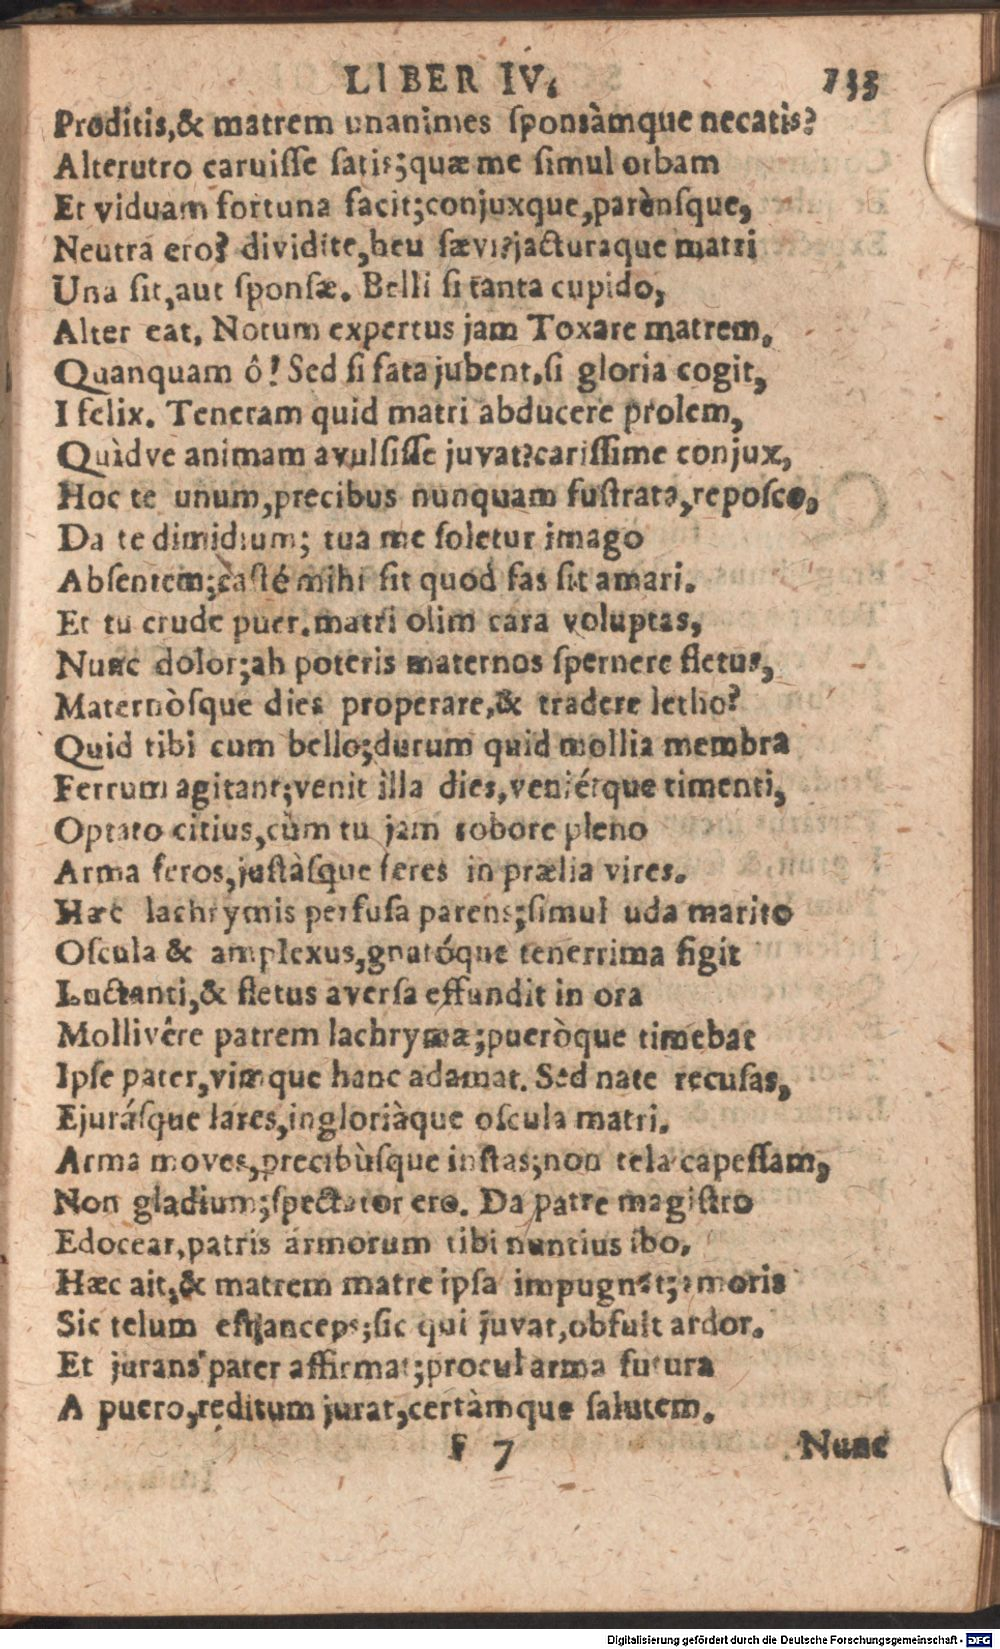 LIBER IV. 133
Proditis,& matrem unanimes sponsàmque necatis?
Alterutro caruisse satis;quæ me simul orbam
Et viduam fortuna facit;conjuxque,parènsque,
Neutra ero? dividite,heu sævi?jacturaque matri
Una sit,aut sponsæ. Belli si tanta cupido,
Alter eat, Notum expertus jam Toxare matrem,
Quanquam ô! Sed si fata jubent,si gloria cogit,
I felix. Teneram quid matri abducere prolem,
Quìdve animam avulsisse juvat?carissime conjux,
Hoc te unum,precibus nunquam fustrata,reposco,
Da te dimidium; tua me soletur imago
Absentem;casté mihi sit quod fas sit amari.
Et tu crude puer.matri olim cara voluptas,
Nunc dolor;ah poteris maternos spernere fletus,
Maternòsque dies properare,& tradere letho?
Quid tibi cum bello;durum quid mollia membra
Ferrum agitant;venit illa dies,veniétque timenti,
Optato citius,cùm tu jam robore pleno
Arma feros,justàsque feres in prælia vires.
Hæc lachrymis perfusa parens;simul uda marito
Oscula & amplexus,gnatóque tenerrima figit
Luctanti,& fletus aversa effundit in ora
Mollivêre patrem lachrymæ;pueròque timebat
Ipse pater,vimque hanc adamat. Sed nate recusas,
Ejurásque lares,ingloriàque oscula matri.
Arma moves,precibùsque instas;non tela capessam,
Non gladium;spectator ero. Da patre magistro
Edocear,patris armorum tibi nuntius ibo.
Hæc ait,& matrem matre ipsa impugnat;amoris
Sic telum est anceps;sic qui juvat,obfuit ardor.
Et jurans pater affirmat;procul arma futura
A puero,reditum jurat,certàmque salutem.
F 7 Nunc
Digitalisierung gefördert durch die Deutsche Forschungsgemeinschaft - DFG